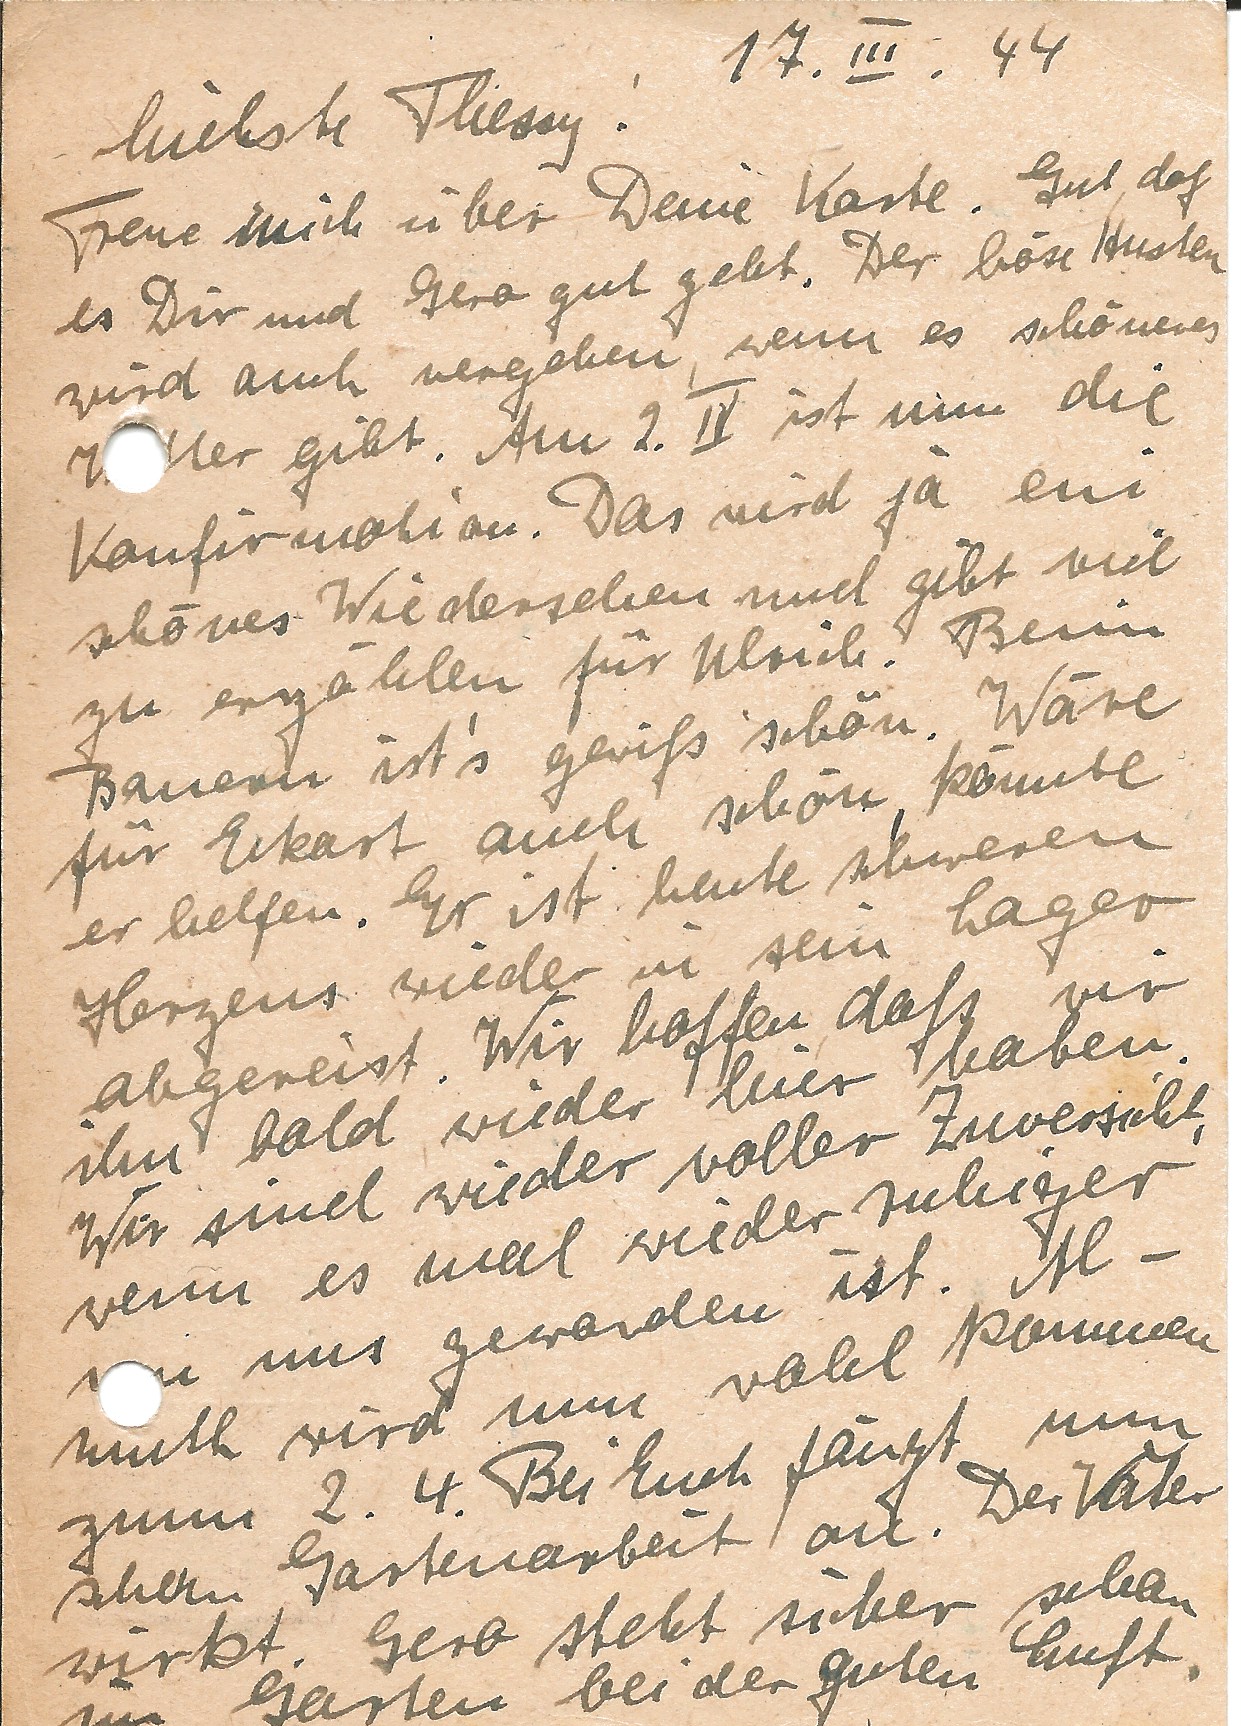 17. III. 44
Liebste Thessy!
Freue mich über Deine Karte. Gut, daß
es Dir und Gero gut geht. Der böse Husten
wird auch vergehen, wenn es schöneres
W tter gibt. Am 2. IV ist nun die
Konfirmation. Das wird ja ein
schönes Wiedersehen und gibt viel
zu erzählen für Ulrich. Beim
Bauern ist's gewiß schön. Wäre
für Eckart auch schön, könnte
er helfen. Er ist heute schweren
Herzens wieder in sein Lager
abgereist. Wir hoffen, daß wir
ihn bald wieder hier haben.
Wir sind wieder voller Zuversicht,
wenn es mal wieder ruhiger
um uns geworden ist. Al-
muth wird nun wohl kommen
zum 2. 4. Bei Euch fängt nun
schon Gartenarbeit an. Der Vater
wirkt. Gero steht sicher schon
im Garten bei der guten Luft.